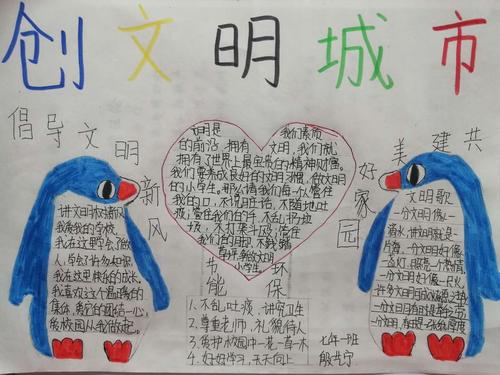 创文明城市
倡导文明新风
共建美好家园
文明是
我们素质
的前沿,拥有文明,我们就
拥有了世界上最宝贵的精神财富。
我们要养成良好的文明习惯,做文明
的小学生。那么请我们每个管住
我的口,不说脏话,不随地吐
痰;管住我们的手,不乱扔垃
圾,不打架斗殴;管住
我们的脚,不践踏
小学生。
节能
环保
1、不乱吐痰,讲究卫生
2、尊重老师,礼貌待人
3、爱护校园中一花一草一木
4、好好学习,天天向上
讲文明树新风
我爱我的学校,
我在这里学会了做
人,学会了
我在这里快乐的成长。
我喜欢这个温暖的
集体,
爱校园从我做起。
文明歌
一分文明像一
滴水,讲文明就是一
片海,一分文明好像
一盏灯,照亮一个
一分文明好像一尺
七年一班